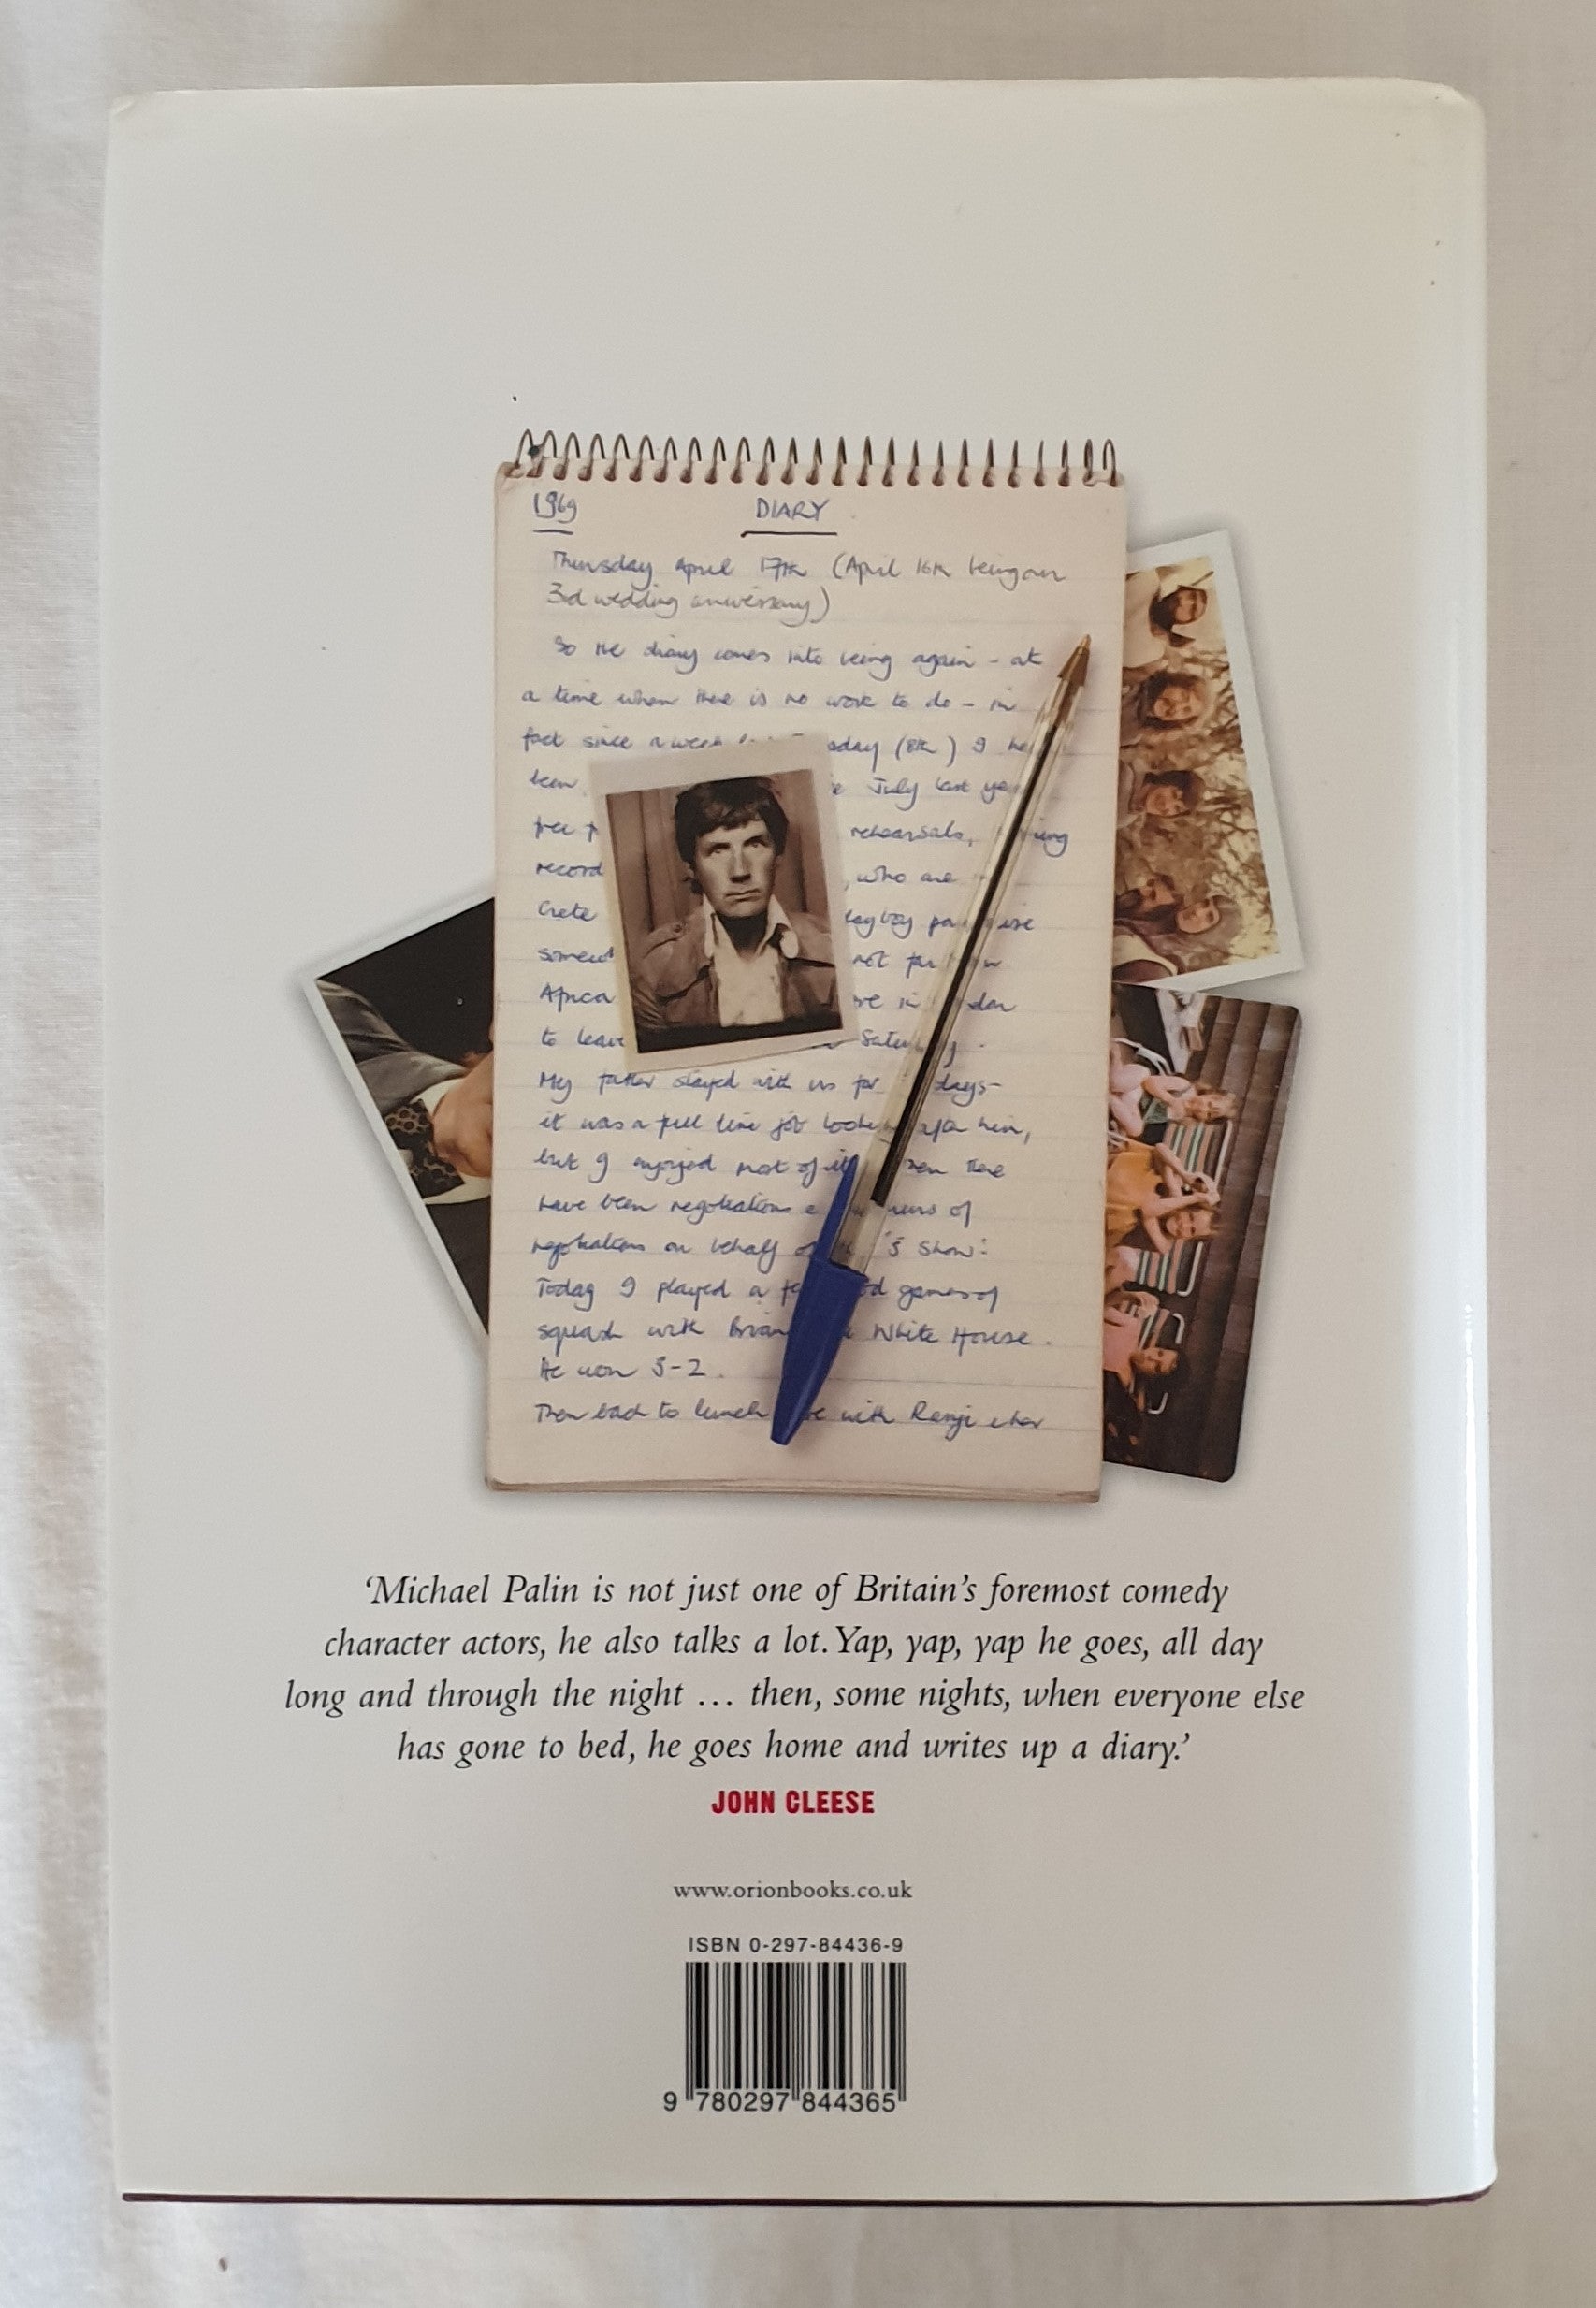 1969 DIARY
Thursday April 17th (April 16th being our
3rd wedding anniversary)
So the diary comes into being again - at
a time when there is no work to do - in
fact since a week sday (8th) I ha
been July last ye
free rehearsals,
record , who are
Crete
somew not far
Africa in
to leave Satu
My father stayed with us for days-
it was a full time job looking after him,
but I enjoyed most of it there
have been negotiations of
negotiations on behalf of 5 Show'.
Today I played a games of
squash with Brian White House.
He won 3-2.
Then back to lunch with Ranji
‘Michael Palin is not just one of Britain’s foremost comedy
character actors, he also talks a lot. Yap, yap, yap he goes, all day
long and through the night … then, some nights, when everyone else
has gone to bed, he goes home and writes up a diary.’
JOHN CLEESE
www.orionbooks.co.uk
ISBN 0-297-84436-9
9 780297 844365